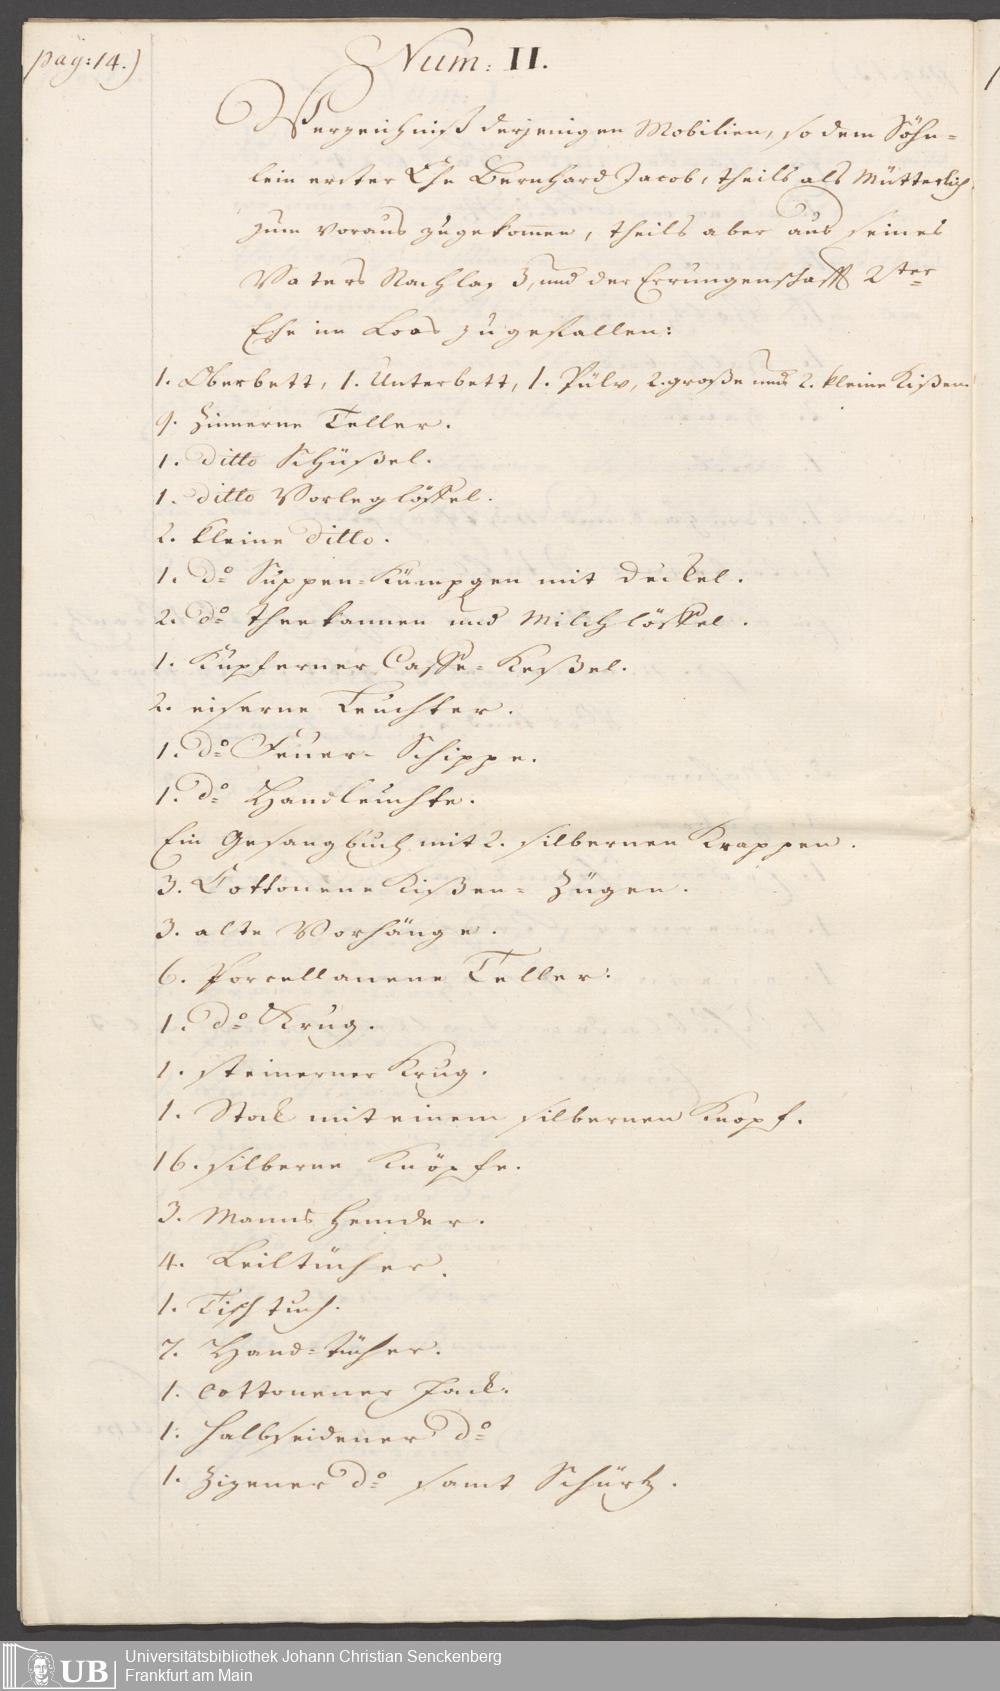 pag: 14.)
Num: II.
Verzeichniß derjenigen Mobilien, so dem Söhn=
lein erster Ehe Bernhard Jacob, theils als Mütterlich
zum voraus zugekom̄en, theils aber aus seines
Vaters Nachlaß, und der Errungenschafft 2ter
Ehe im Loos zugefallen:
1. Oberbett, 1. Unterbett, 1. Pülv, 2. große und 2. kleine Kißen
9. Zinnerne Teller.
1. ditto Schüßel.
1. ditto Vorleglöffel.
2. kleine ditto.
1. do Suppen=Kümpgen mit Deckel.
2. do Theekannen und Milchlöffel.
1. Kupferner Caffe=Keßel.
2. eiserne Leuchter.
1. do Feuer=Schippe.
1. do Handleuchte.
Ein Gesangbuch mit 2. silbernen Krappen.
3. Cottonene Kißen=Zügen.
3. alte Vorhänge.
6. Porcellanene Teller.
1. do Krug.
1. steinerner Krug.
1. Stock mit einem silbernen Knopf.
16. silberne Knöpfe.
3. Manns Hemder.
4. Leiltücher.
1. Tischtuch.
7. Hand=tücher.
1. cottonener Jack.
1. halbseidener do
1. Zizener do samt Schürtz.
UB Universitätsbibliothek Johann Christian Senckenberg
Frankfurt am Main